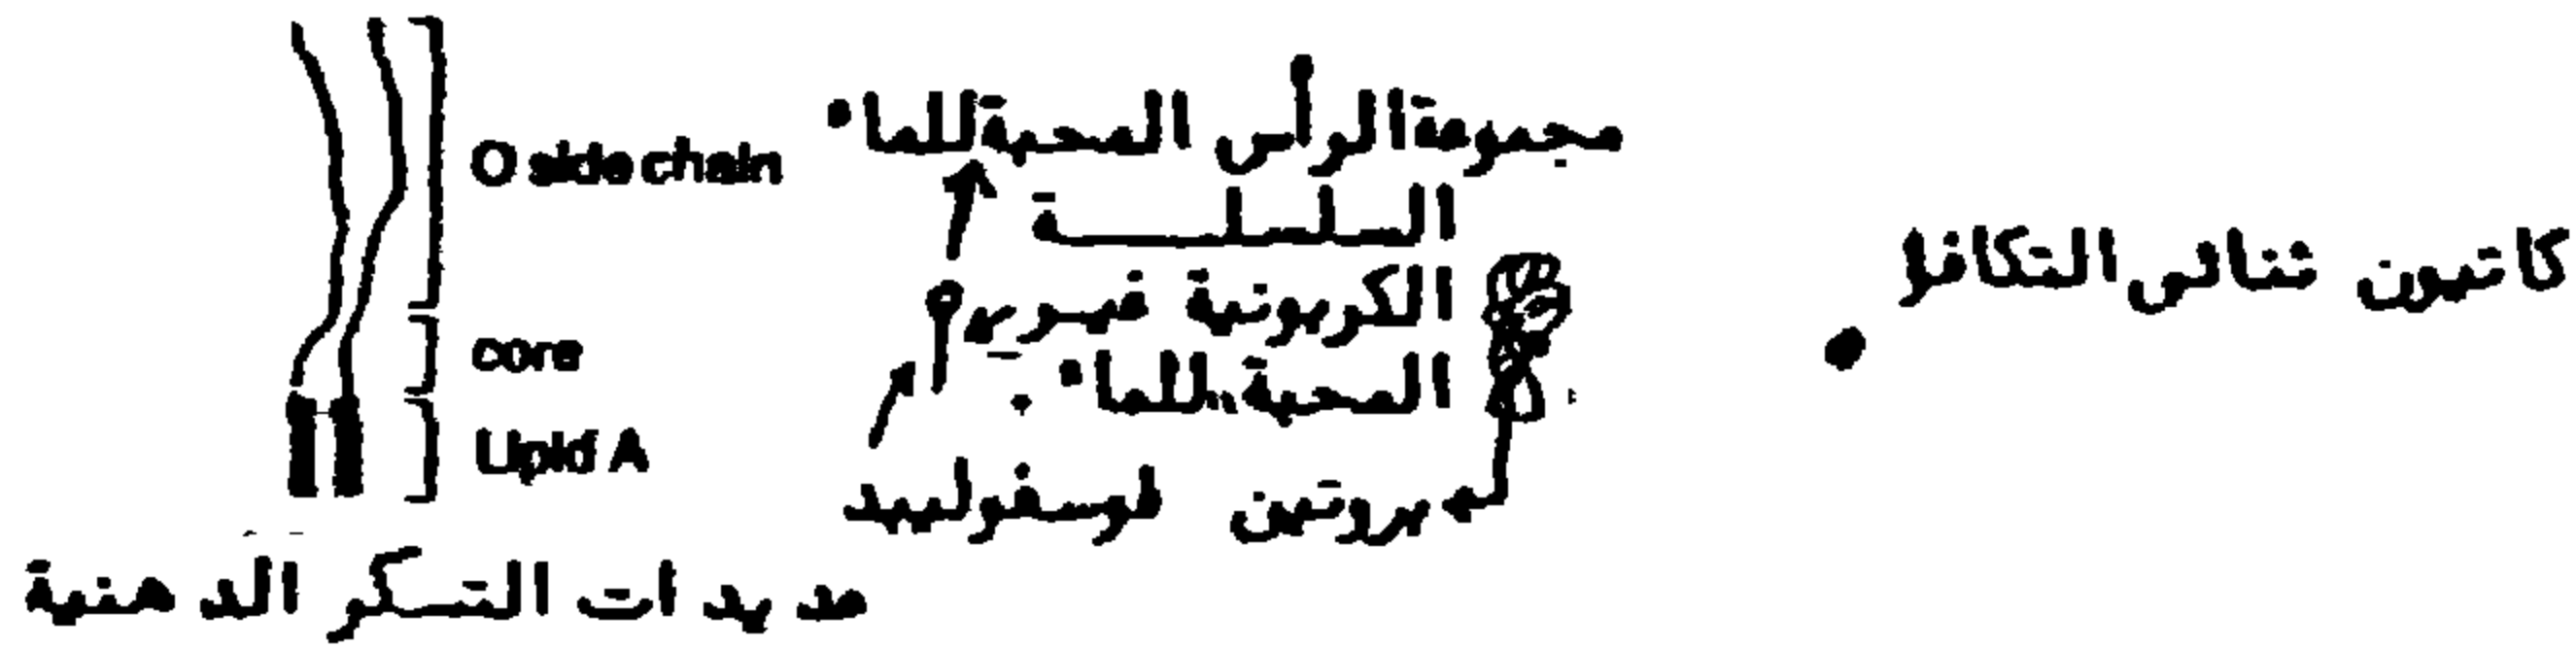 O side chain
core
Lipid A
عديدات التسكر الدهنية
مجموعة الرأس المحبة للماء
السلسلة
الكربونية غير
المحبة للماء
بروتين فوسفوليبيد
كاتيون ثنائى التكافؤ